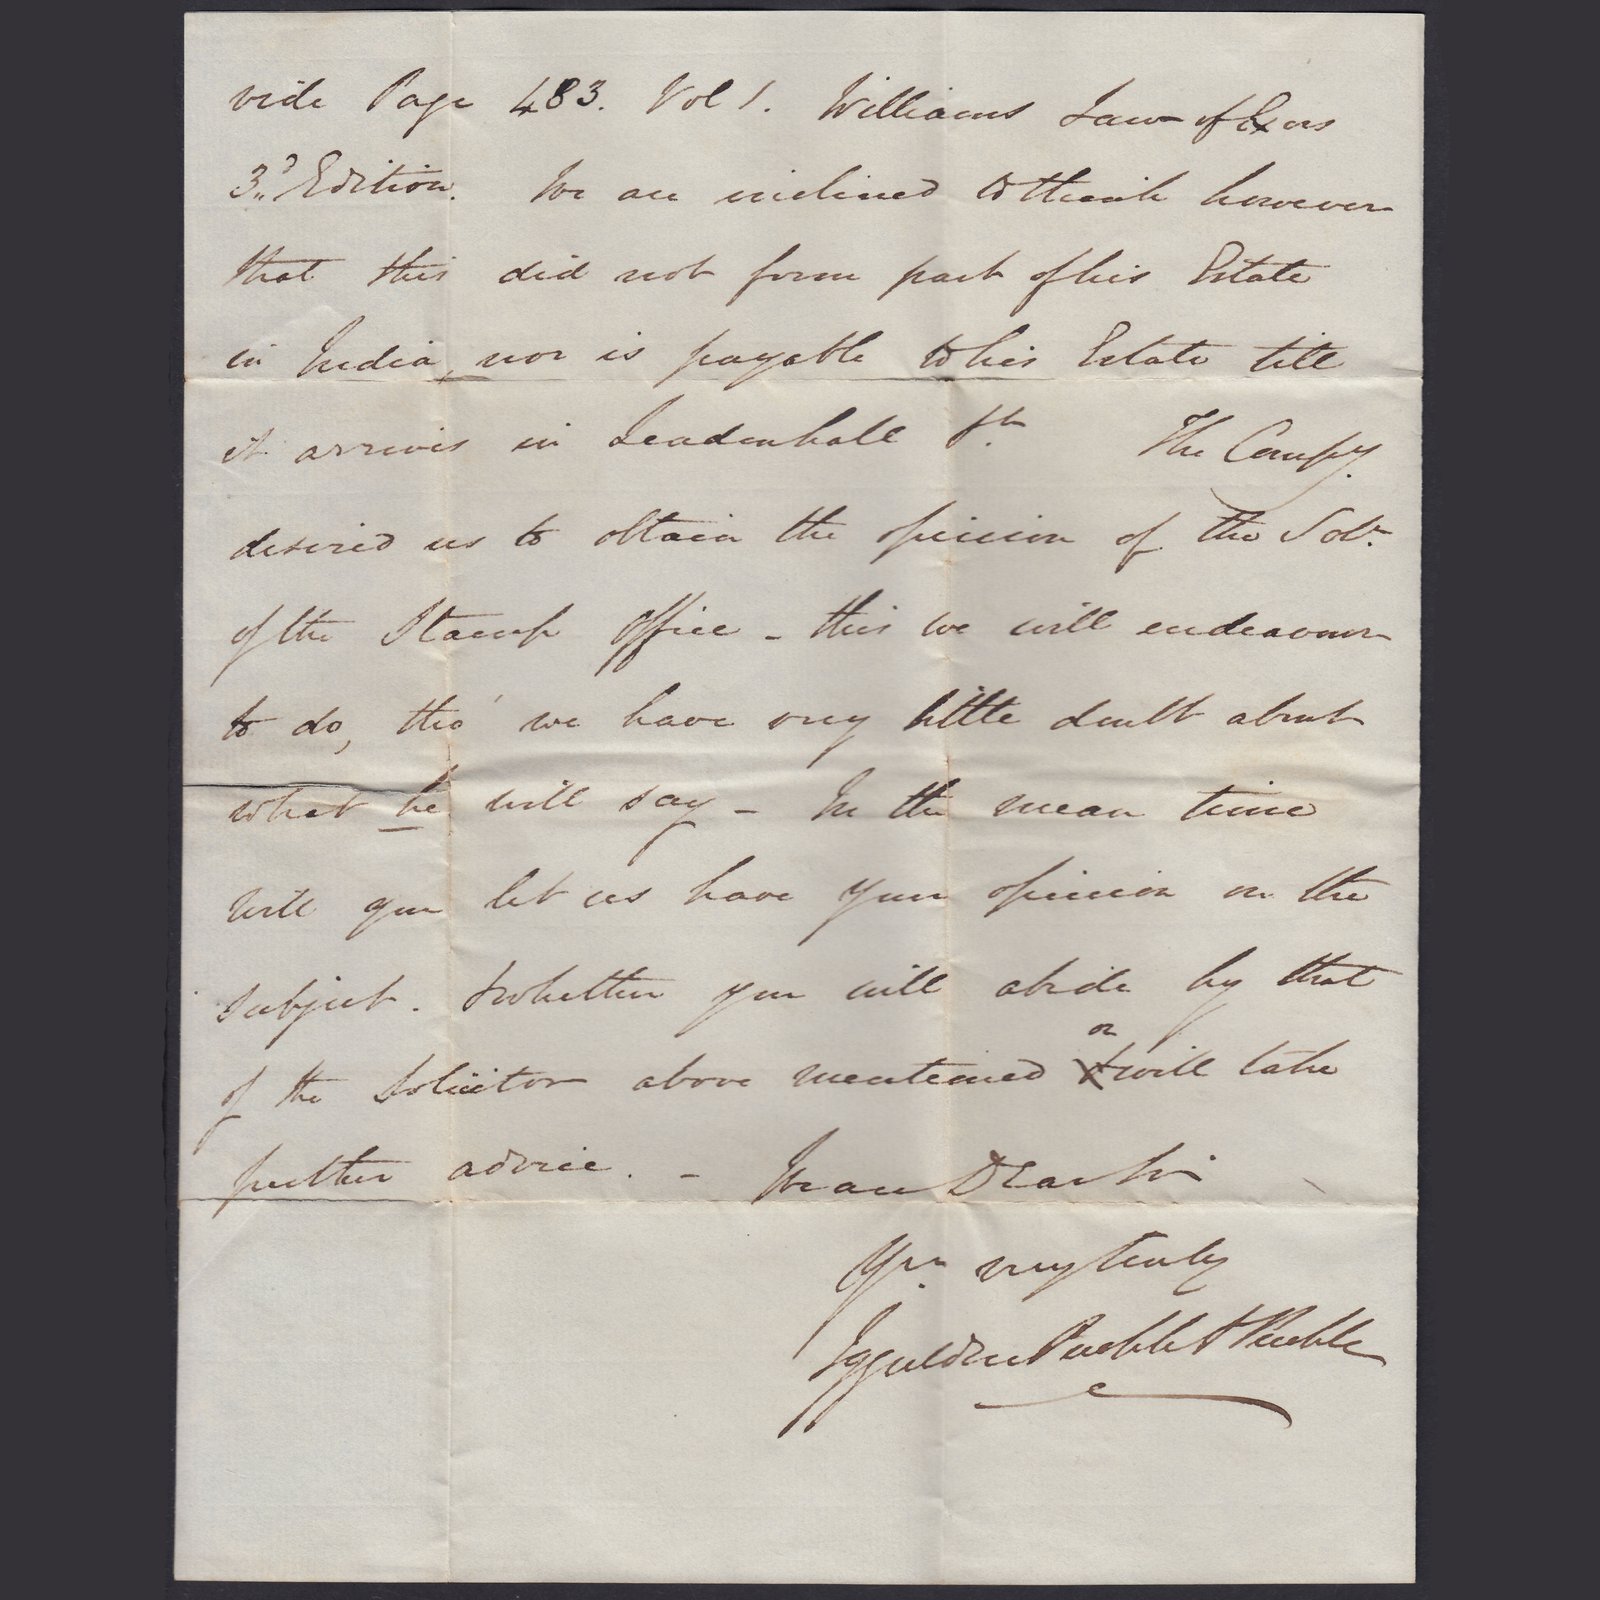 vide Page 483. Vol 1. Williams Law of Exors
3d. Edition. We are inclined to think however
that this did not form part of his Estate
in India, nor is payable to his Estate till
it arrives in Leadenhall St. The Compy.
desired us to obtain the opinion of the Solr.
of the Stamp Office - this we will endeavour
to do, tho' we have very little doubt about
what he will say - In the mean time
will you let us have your opinion on the
subject. & whether you will abide by that
of the Solicitor above mentioned or will take
further advice. - We are Dear Sir
Yrs. very truly